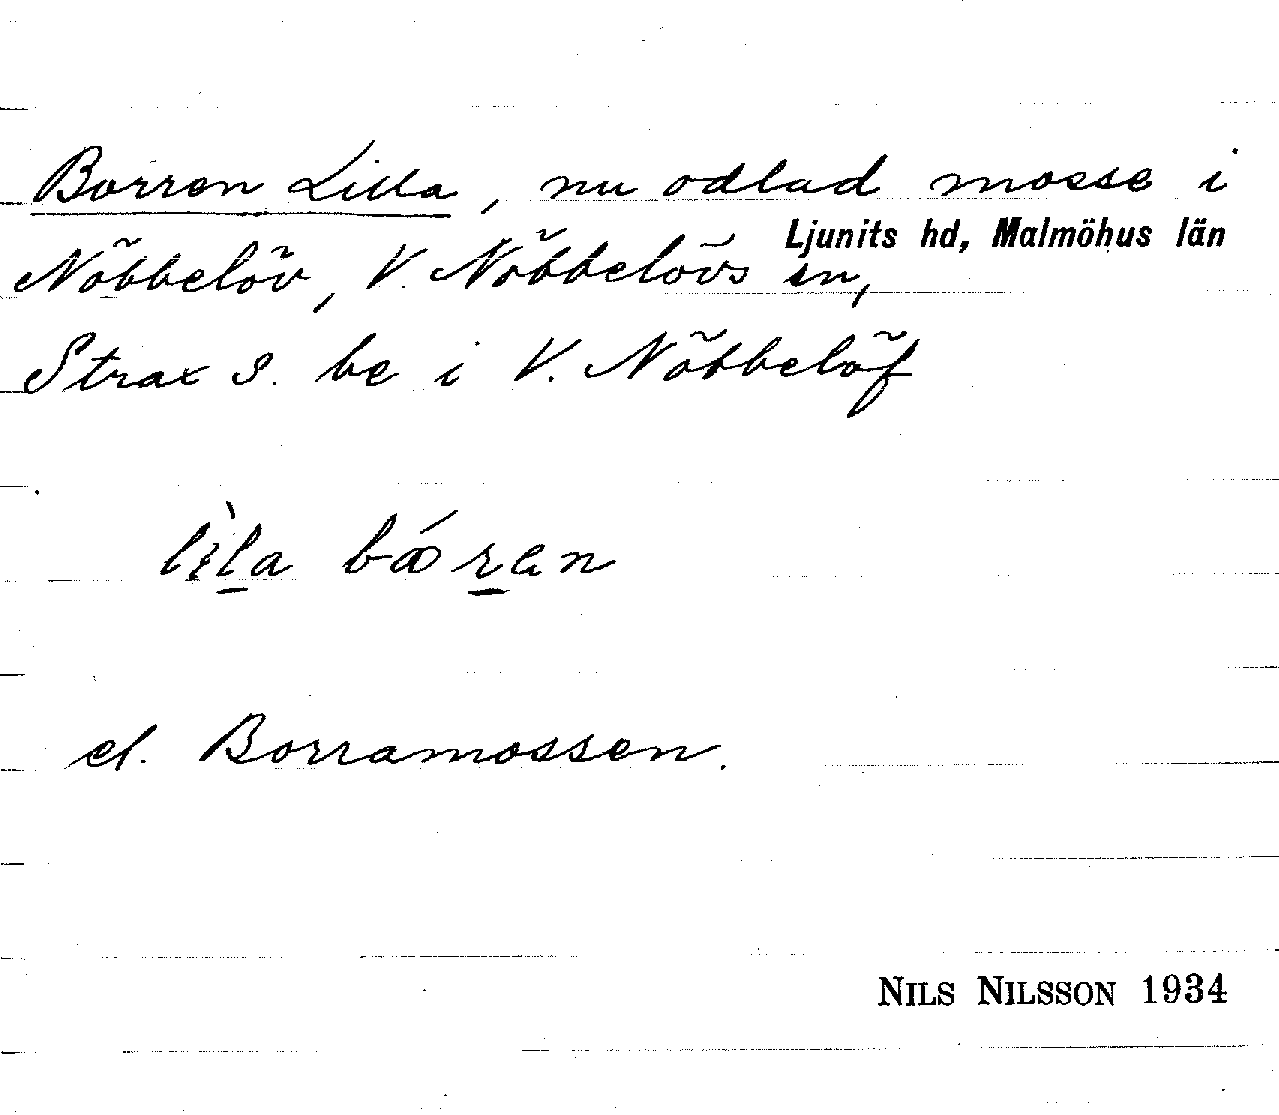 Borren Lilla, nu odlad mosse i
Ljunits hd, Malmöhus län
Nöbbelöv, V. Nöbbelövs sn,
Strax s. be i V. Nöbbelöf
lìla bǿren
el. Borramossen.
NILS NILSSON 1934